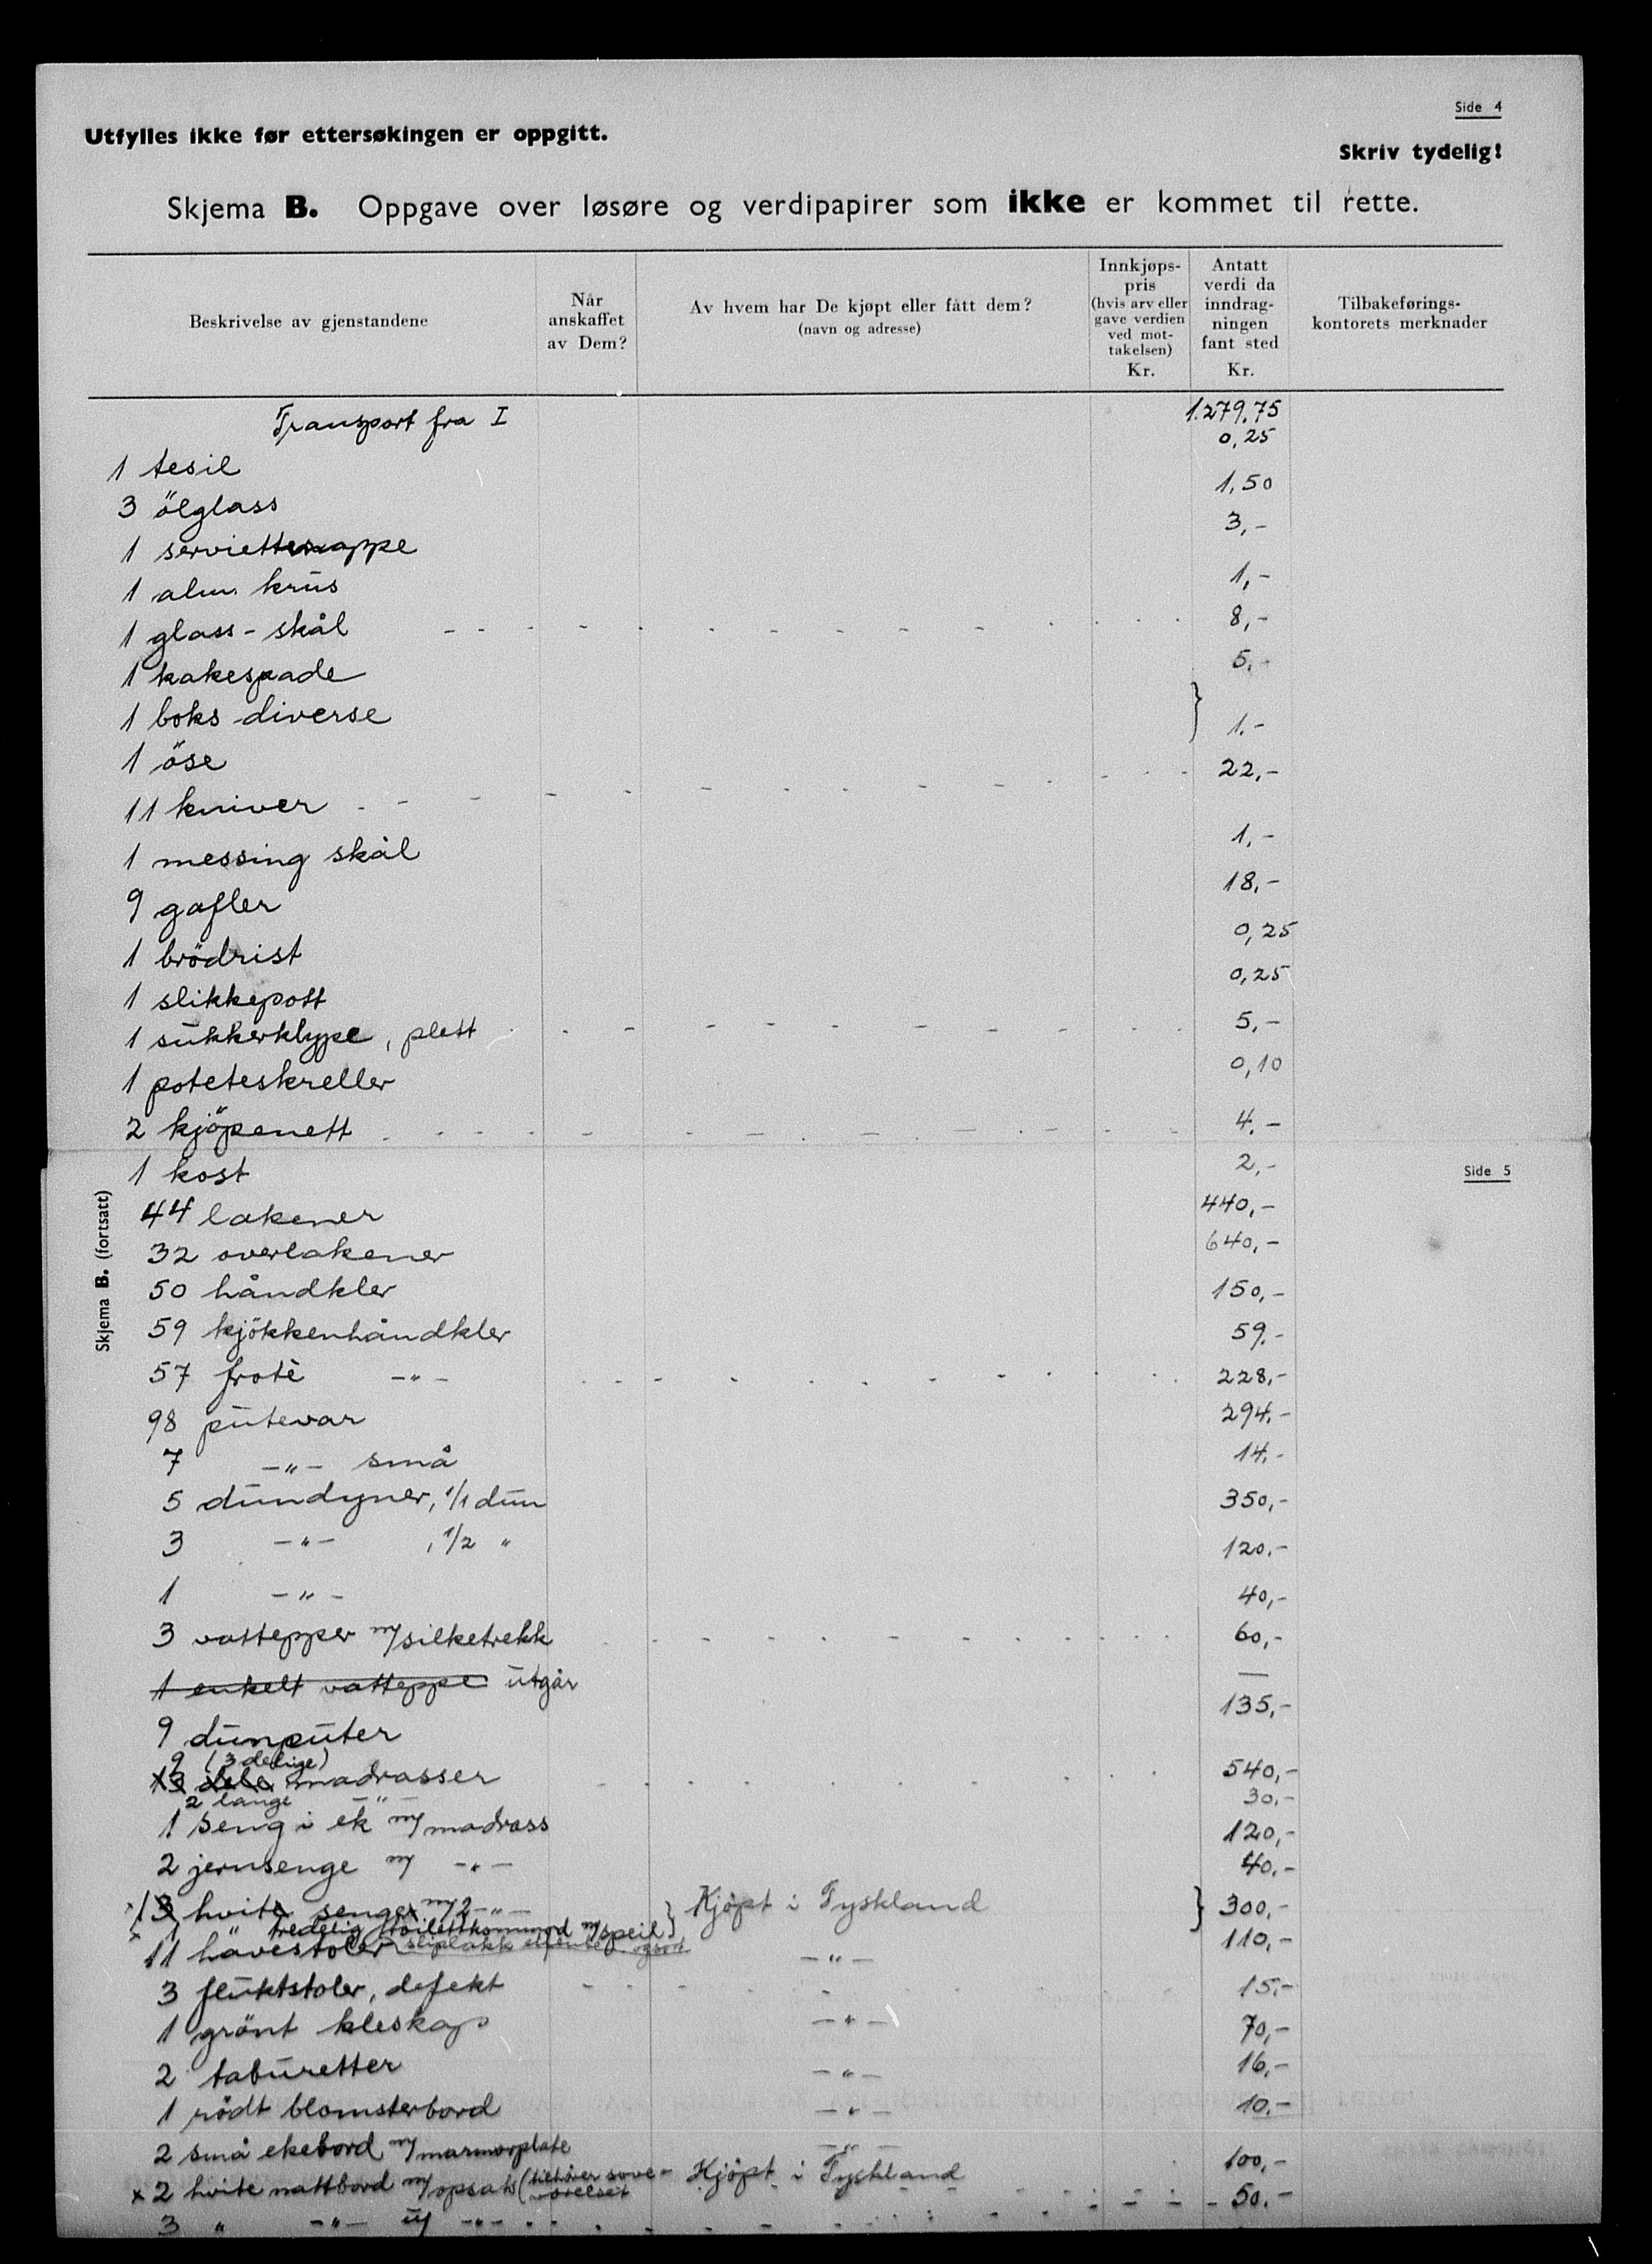 Side 4
Utfylles ikke før ettersøkingen er oppgitt.
Skriv tydelig!
Skjema B. Oppgave over løsøre og verdipapirer som ikke er kommet til rette.
Beskrivelse av gjenstandene
Når anskaffet av Dem?
Av hvem har De kjøpt eller fått dem? (navn og adresse)
Innkjøps-pris (hvis arv eller gave verdien ved mot-takelsen) Kr.
Antatt verdi da inndrag-ningen fant sted Kr.
Tilbakeførings-kontorets merknader
Transport fra I 1.279,75
1 tesil 0,25
3 ölglass 1,50
1 serviettmappe 3,-
1 alm. krus 1,-
1 glass-skål 8,-
1 kakespade 5,-
1 boks diverse
1 öse } 1.-
11 kniver 22,-
1 messing skål 1,-
9 gafler 18,-
1 brödrist 0,25
1 slikkepott 0,25
1 sukkerklype, plett 5,-
1 poteteskreller 0,10
2 kjöpenett 4.-
1 kost 2,-
Side 5
Skjema B. (fortsatt)
44 lakener 440,-
32 overlakener 640,-
50 håndkler 150,-
59 kjökkenhåndkler 59.-
57 frotè -"- 228,-
98 putevar 294.-
7 -"- små 14.-
5 dundyner, 1/1 dun 350,-
3 -"- , 1/2 " 120.-
1 -"- 40,-
3 vattepper m/silketrekk 60,-
1 enkelt vatteppe utgår —
9 dunputer 135,-
9 (3 delige)
13 dele madrasser 540,-
2 lange -"- 30,-
1 seng i ek m/madrass 120,-
2 jernsenge m/ -"- 40.-
x 1 3 hvite senger m/2 -"- } Kjöpt i Tyskland } 300,-
x 1 " tredelig toilettkommod m/speil
11 havestoler -"- 110,-
3 fluktstoler, defekt 15,-
1 grönt kleskap -"- 70,-
2 taburetter -"- 16,-
1 rödt blomsterbord -"- 10.-
2 små ekebord m/marmorplate -"- 100,-
x 2 hvite nattbord m/opsats (tilhörer sove-værelset Kjöpt i Tyskland 50.-
3 " -"- u/ -"-